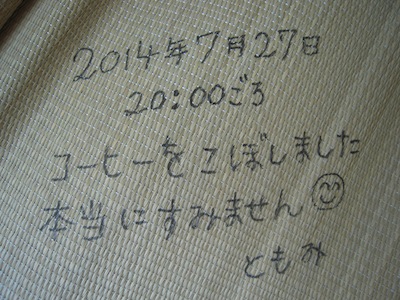 2014年7月27日
20:00ごろ
コーヒーをこぼしました
本当にすみません
ともみ